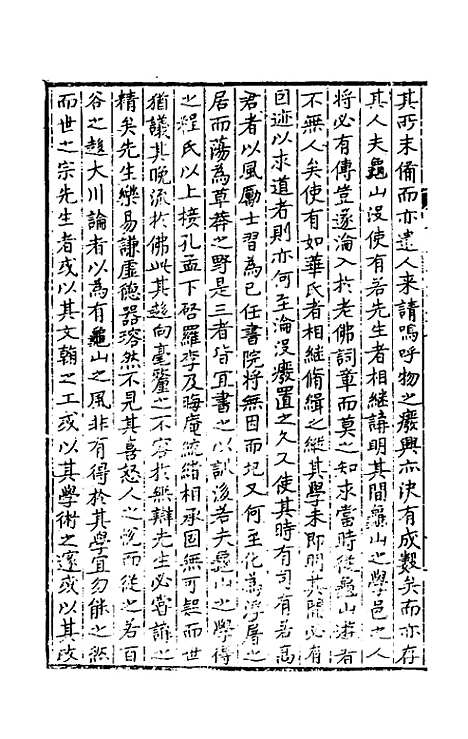 其所未備而亦遣人来請嗚呼物之廢興亦决有成數矣而亦存
其人夫龜山沒使有若先生者相継講明其間龜山之學邑之人
将必有傳豈遂淪入扵老佛詞章而莫之知求當時從龜山遊者
不無人矣使有如華氏者相継脩緝之縱其學未即明其間必有
因迹以求道者則亦何至淪没廢置之久又使其時有司有若高
君者以風勵士習為已任書院将無因而圮又何至化為浮屠之
居而蕩為草莽之野是三者皆宜書之以訓後若夫龜山之學得
之程氏以上接孔孟下啓羅李及晦庵綂緒相承固無可疑而世
猶議其晚流扵佛此其趍向毫釐之不容扵無辯先生必嘗講之
精矣先生樂易謙虚徳器溶然不見其喜怒人之恱而從之若百
谷之趍大川論者以為有龜山之風非有得扵其學宜勿能之然
而世之宗先生者或以其文翰之工或以其學術之邃或以其政